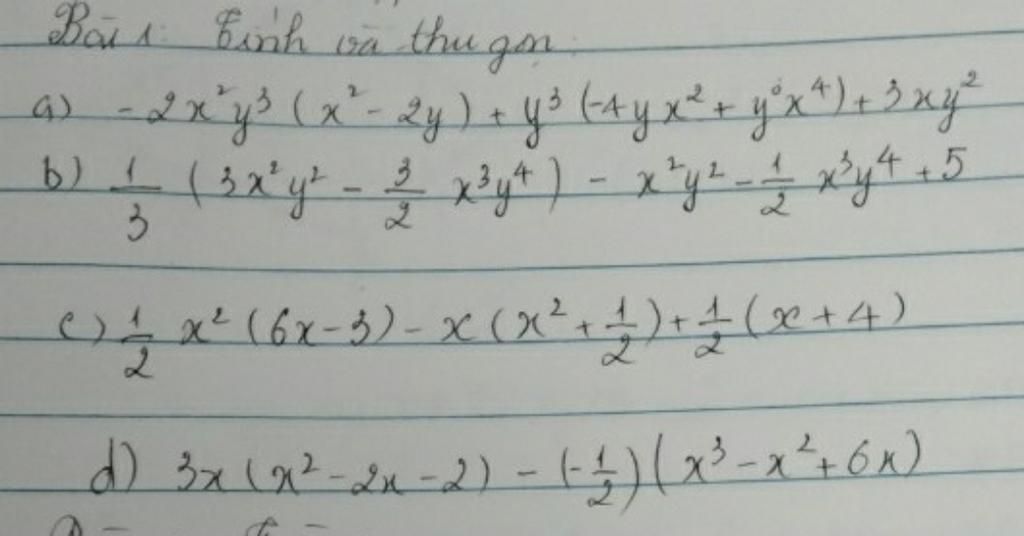 Bài 1: Tính và thu gọn.
a) -2x²y³ (x² - 2y) + y³ (-4yx² + y⁰x⁴) + 3xy²
b) 1/3 (3x²y² - 3/2 x³y⁴) - x²y² - 1/2 x³y⁴ + 5
c) 1/2 x² (6x - 3) - x (x² + 1/2) + 1/2 (x + 4)
d) 3x (x² - 2x - 2) - (-1/2) (x³ - x² + 6x)